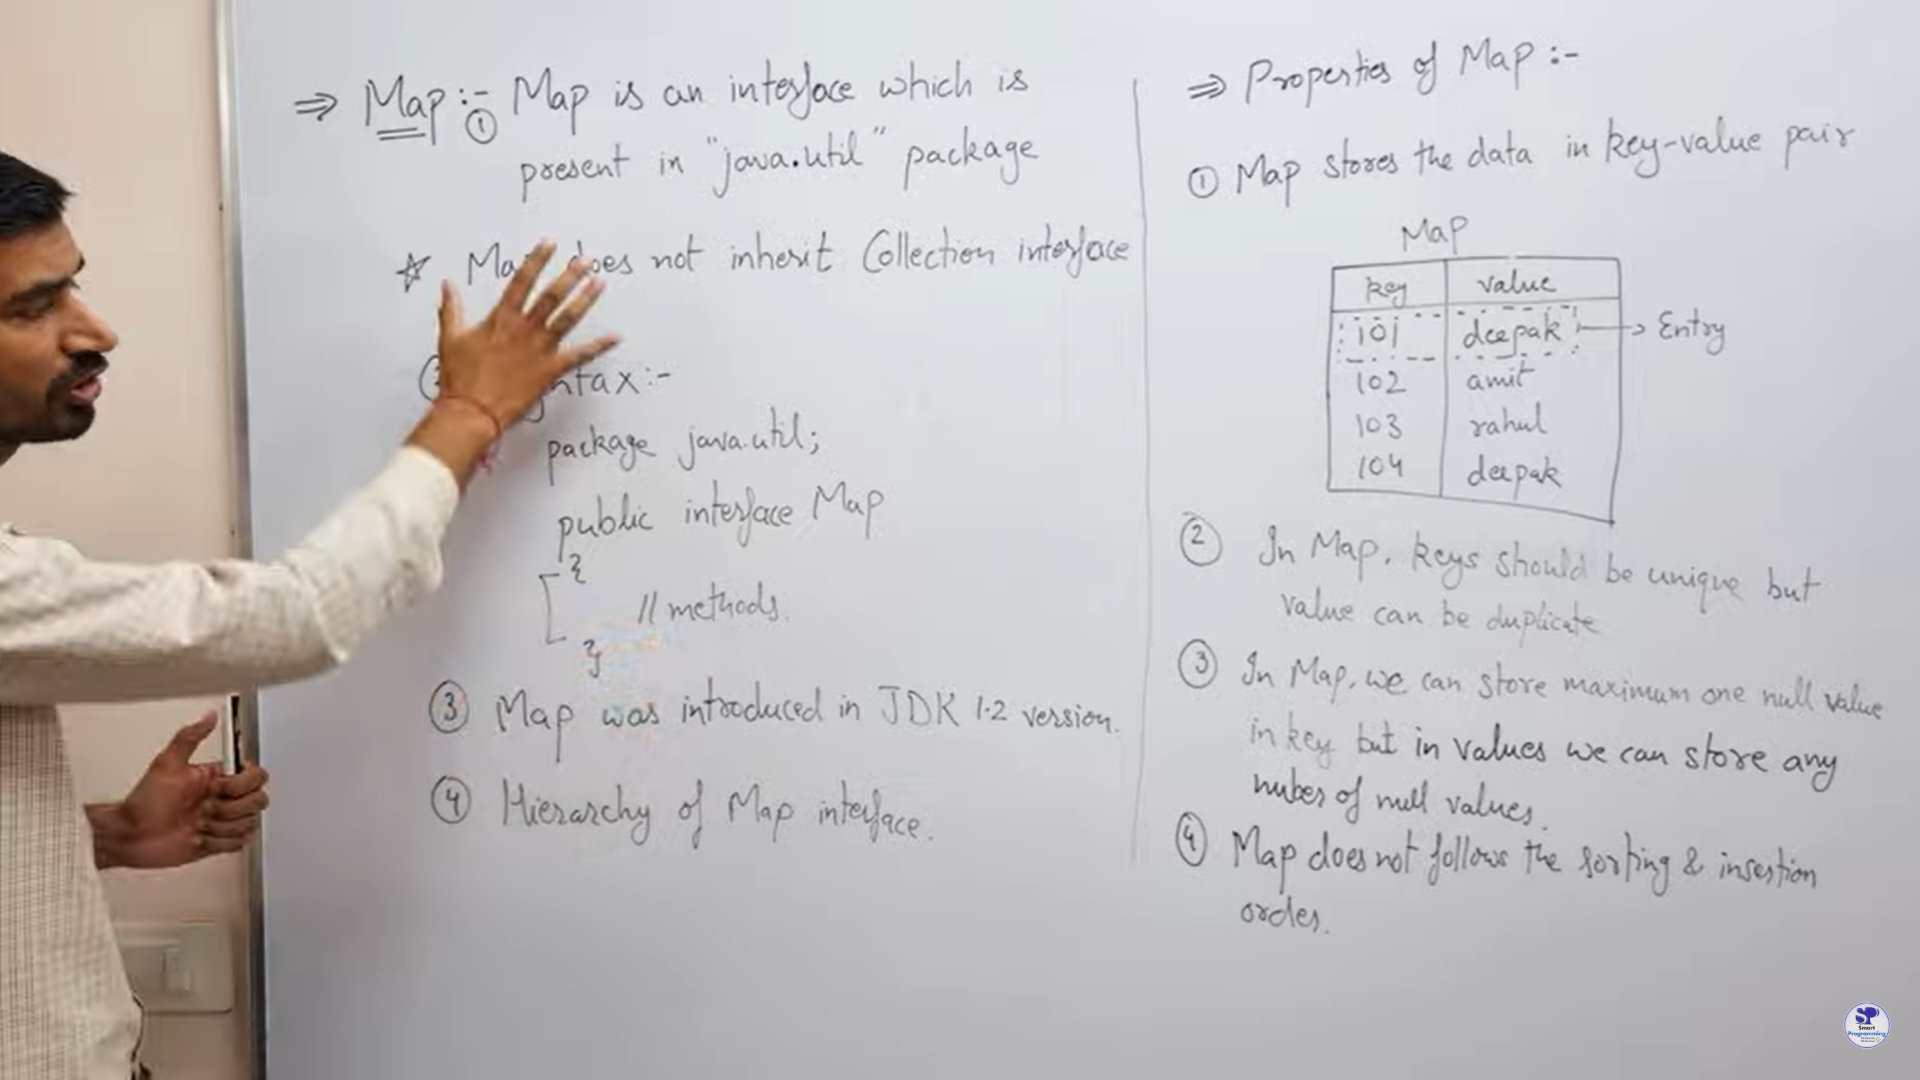 ⇒ Map :- ① Map is an interface which is
present in "java.util" package
☆ Map does not inherit Collection interface
ntax:-
package java.util;
public interface Map
{
// methods.
}
③ Map was introduced in JDK 1.2 version.
④ Hierarchy of Map interface.
⇒ Properties of Map :-
① Map stores the data in key-value pair
Map
key value
101 deepak → Entry
102 amit
103 rahul
104 deepak
② In Map, keys should be unique but
value can be duplicate
③ In Map, we can store maximum one null value
in key but in values we can store any
nuber of null values.
④ Map does not follows the sorting & insertion
order.
SP
Smart
Programming